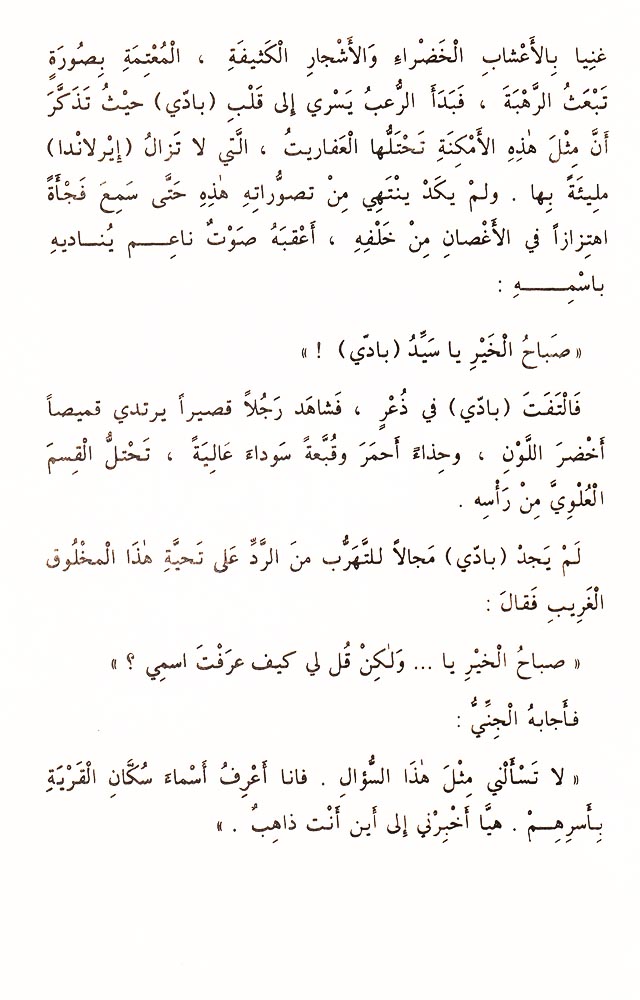 غنِيا بِالأَعْشابِ الْخَضْراءِ وَالأَشْجارِ الْكَثيفَةِ ، الْمُعْتِمَةِ بِصُورَةٍ
تَبْعَثُ الرَّهْبَةَ ، فَبَدَأَ الرُّعبُ يَسْري إِلى قَلْبِ (بادّي) حيْثُ تَذَكَّرَ
أَنَّ مِثْلَ هٰذِهِ الأَمْكِنَةِ تَحْتَلُّها الْعَفاريتُ ، الَّتي لا تَزالُ (إيْرلاندا)
مليئَةً بِها . ولمْ يكَدْ ينْتَهِي مِنْ تصوُّراتِهِ هٰذِهِ حَتَّى سَمِعَ فَجْأَةً
اهتِزازاً في الأَغْصانِ مِنْ خَلْفِهِ ، أَعْقبَهُ صَوْتٌ ناعِم يُناديهِ
باسْمِهِ :
« صَباحُ الْخَيْرِ يا سَيِّدُ (بادّي) ! »
فَالْتَفَتَ (بادّي) في ذُعْرٍ ، فَشاهَد رَجُلاً قصيراً يرتدي قميصاً
أَخْضرَ اللَّوْنِ ، وحِذاءً أَحمَرَ وقُبَّعةً سَوداءَ عَالِيَةً ، تَحْتلُّ الْقِسمَ
الْعُلْوِيَّ مِنْ رَأْسِه .
لَمْ يَجدْ (بادّي) مَجالاً للتَّهَرُّب منَ الرَّدِّ عَلى تَحيَّةِ هٰذَا الْمخْلُوق
الْغَرِيبِ فَقالَ :
« صباحُ الْخيْرِ يا ... وَلٰكِنْ قُل لي كيف عرَفْتَ اسمِي ؟ »
فأَجابهُ الْجِنِّيُّ :
« لا تَسْأَلْني مِثْلَ هٰذَا السُّؤالِ . فانا أَعْرِفُ أَسْماءَ سُكَّانِ الْقَرْيَةِ
بِأَسرِهِمْ . هيَّا أَخْبِرْني إِلى أَين أَنْت ذاهِبٌ . »